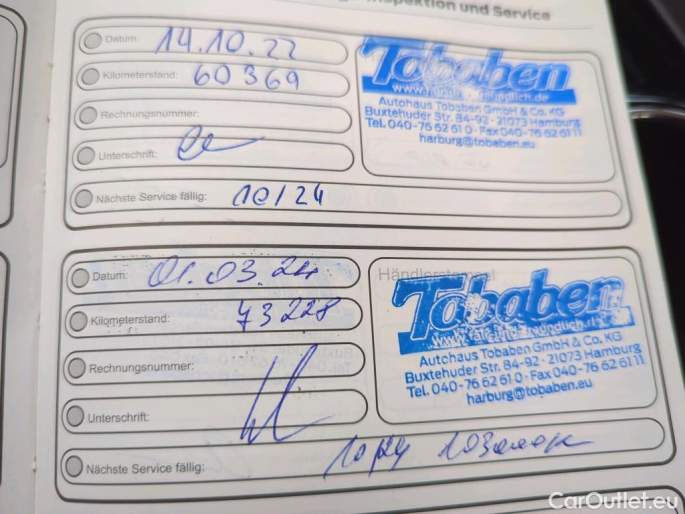 Inspektion und Service
Datum: 14.10.22
Kilometerstand: 60369
Rechnungsnummer:
Unterschrift:
Nächste Service fällig: 10/24
Tobaben
Autohaus Tobaben GmbH & Co. KG
Buxtehuder Str. 84-92 - 21073 Hamburg
Tel. 040-76 62 61 0 - Fax 040-76 62 61 11
harburg@tobaben.eu
Datum: 01.03.24
Kilometerstand: 73228
Rechnungsnummer:
Unterschrift:
Nächste Service fällig: 10/24
Händlerstempel
Tobaben
Autohaus Tobaben GmbH & Co. KG
Buxtehuder Str. 84-92 - 21073 Hamburg
Tel. 040-76 62 61 0 - Fax 040-76 62 61 11
harburg@tobaben.eu
CarOutlet.eu